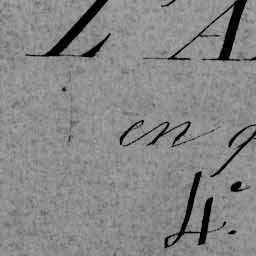 L'A
en
4.